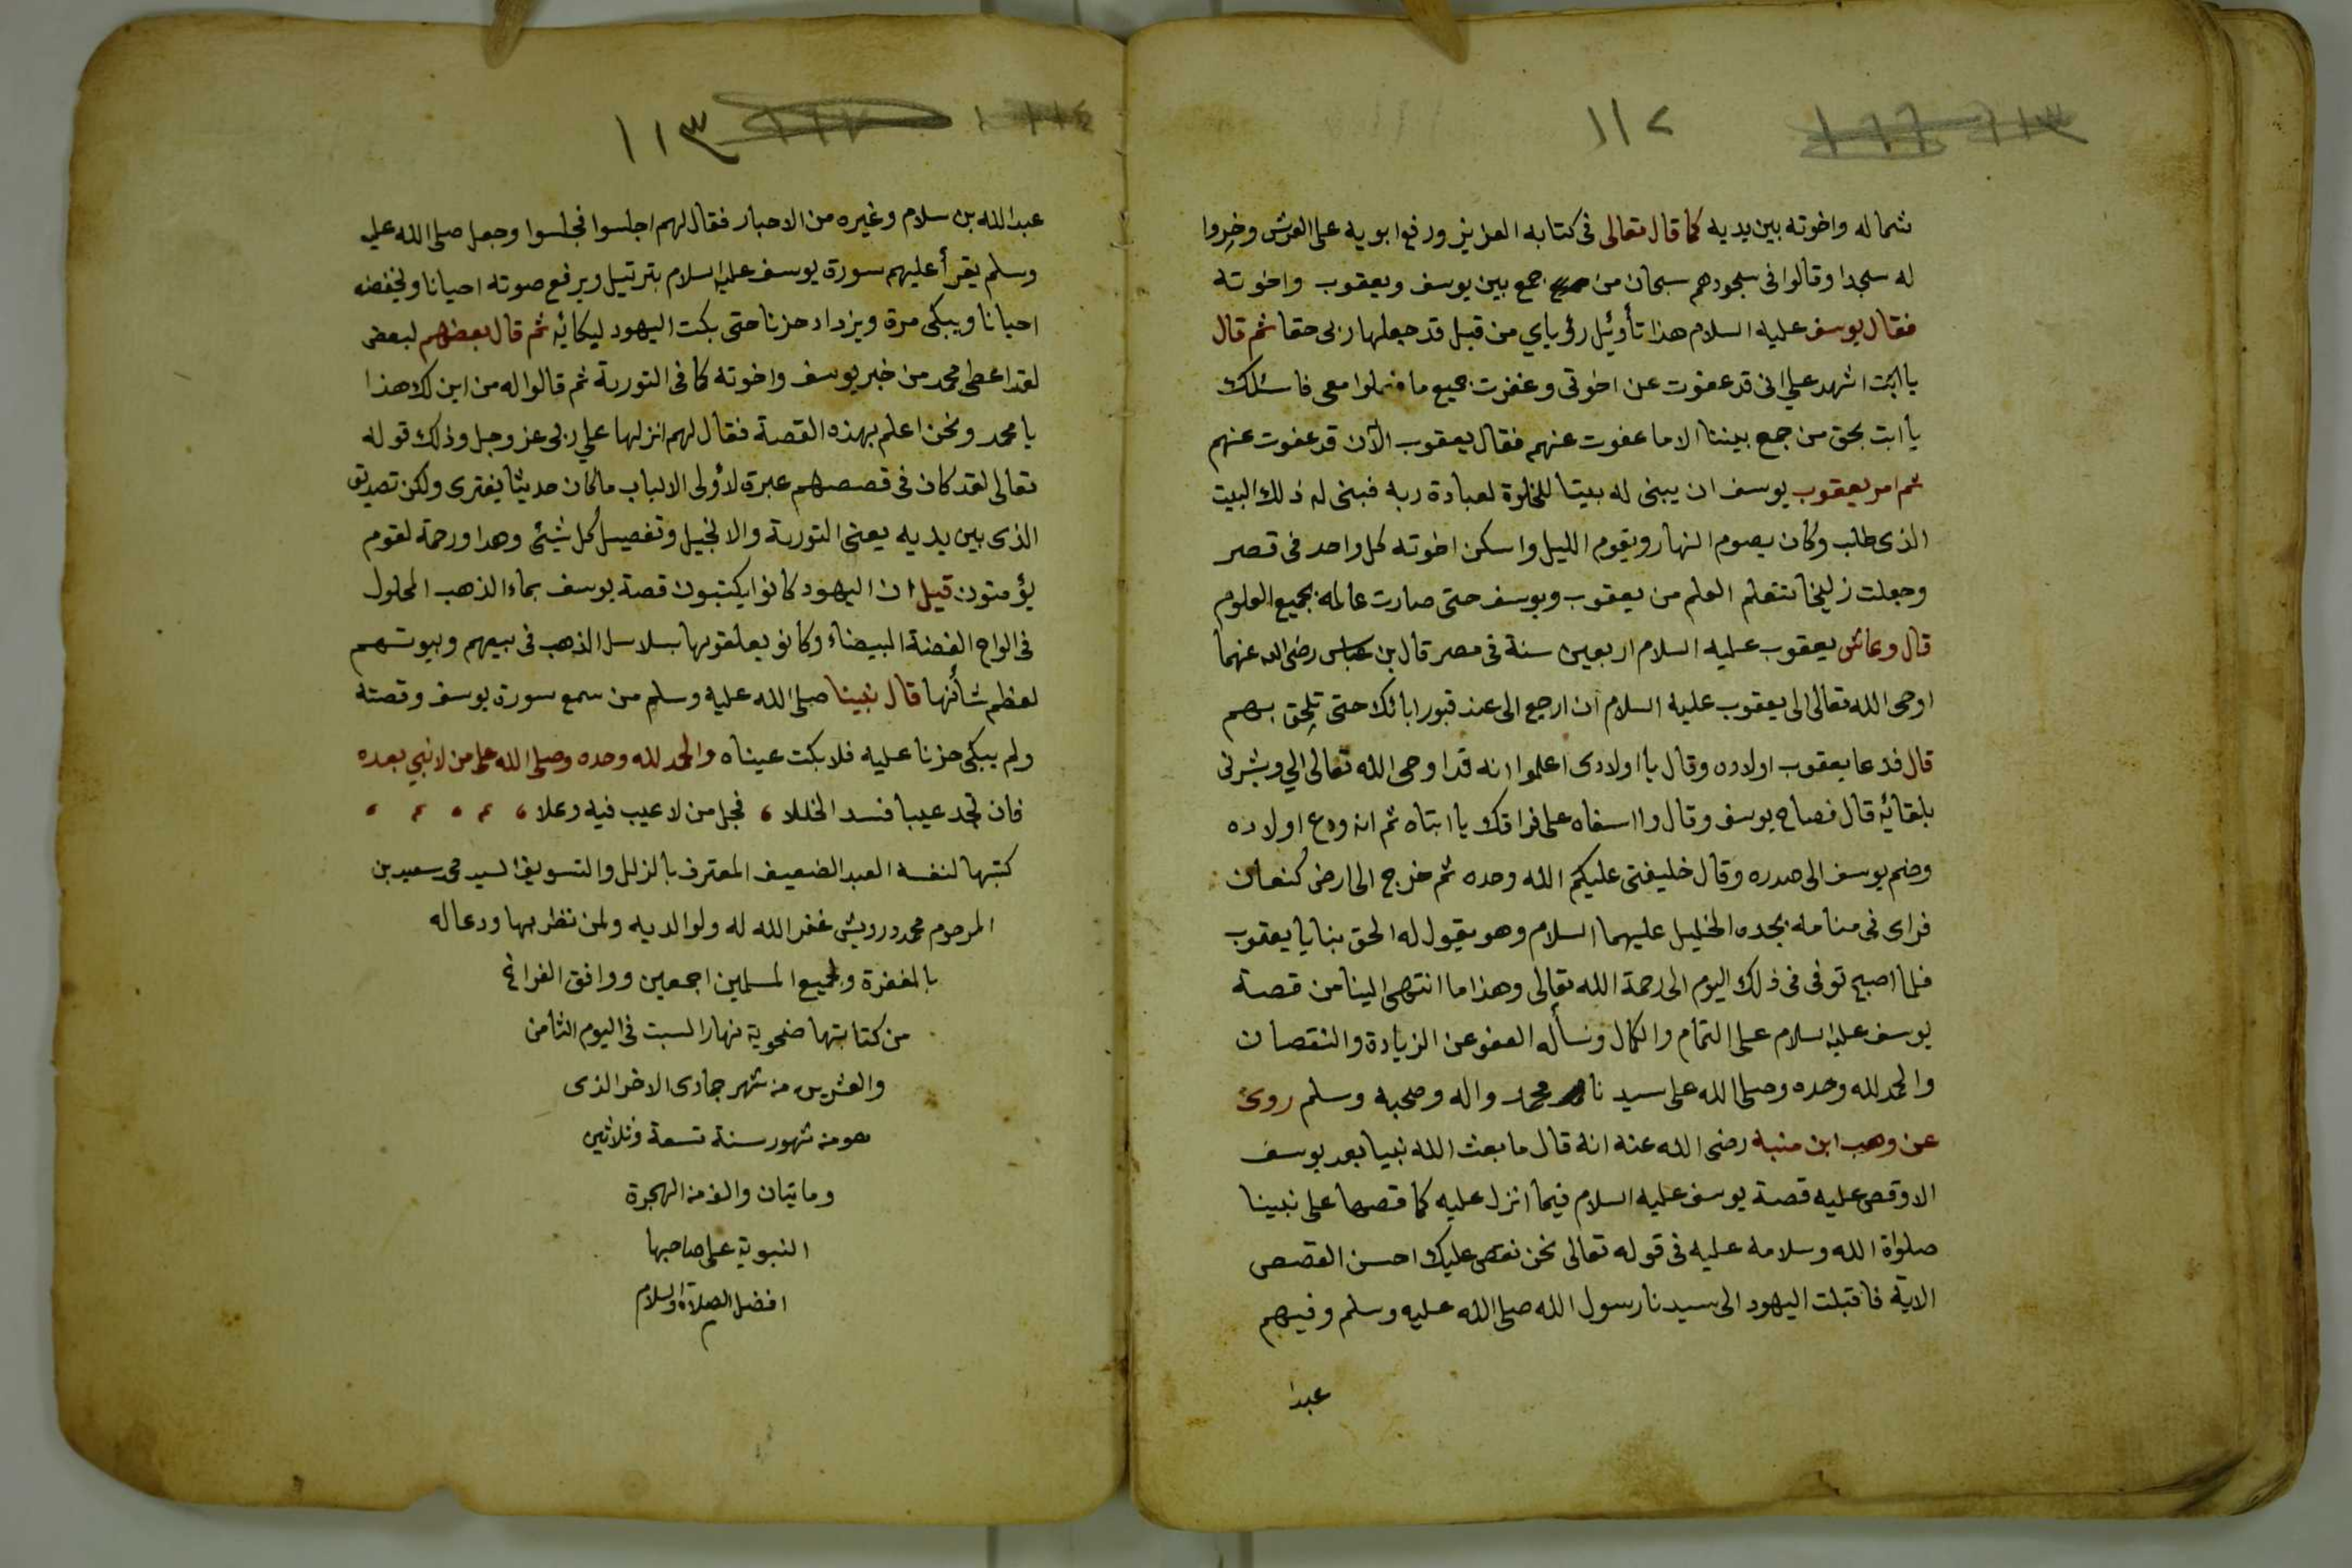 ١١٢
شماله واخوته بين يديه كما قال تعالى فى كتابه العزيز ورفع ابويه على العرش وخروا
له سجدا وقالوا فى سجودهم سبحان من جمع بين يوسف ويعقوب واخوته
فقال يوسف عليه السلام هذا تأوئيل رؤياي من قبل قد جعلها ربى حقا ثم قال
يا ابت اشهد علي انى قد عفوت عن اخوتى وغفرت جميع ما فعلوا معى فاسئلك
يا ابت بحق من جمع بيننا الا ما عفوت عنهم فقال يعقوب الآن قد عفوت عنهم
ثم امر يعقوب يوسف ان يبنى له بيتا للخلوة لعبادة ربه فبنى له ذلك البيت
الذى طلب وكان يصوم النهار ويقوم الليل واسكن اخوته كل واحد فى قصر
وجعلت زليخا تتعلم العلم من يعقوب ويوسف حتى صارت عالمه بجميع العلوم
قال وعاش يعقوب عليه السلام اربعين سنة فى مصر قال بن عباس رضى الله عنهما
اوحى الله تعالى الى يعقوب عليه السلام ان ارجع الى عند قبور ابائك حتى تلحق بهم
قال فدعا يعقوب اولاده وقال يا اولادى اعلموا انه قد اوحى الله تعالى الي وبشرنى
بلقائه قال فصاح يوسف وقال وا اسفاه على فراقك يا ابتاه ثم انه ودع اولاده
وضم يوسف الى صدره وقال خليفتى عليكم الله وحده ثم خرج الى ارض كنعان
فراى فى منامه بجده الخليل عليهما السلام وهو يقول له الحق بنا يا يعقوب
فلما اصبح توفى فى ذلك اليوم الى رحمة الله تعالى وهذا ما انتهى الينا من قصة
يوسف عليه السلام على التمام والكمال ونسأله العفو عن الزيادة والنقصان
والحمد لله وحده وصلى الله على سيدنا محمد واله وصحبه وسلم روى
عن وهب ابن منبه رضى الله عنه انه قال ما بعث الله نبيا بعد يوسف
الا وقص عليه قصة يوسف عليه السلام فيما انزل عليه كما قصها على نبينا
صلواة الله وسلامه عليه فى قوله تعالى نحن نقص عليك احسن القصص
الاية فاقبلت اليهود الى سيدنا رسول الله صلى الله عليه وسلم وفيهم
عبد
١١٣
عبد الله بن سلام وغيره من الاحبار فقال لهم اجلسوا فجلسوا وجعل صلى الله عليه
وسلم يقرأ عليهم سورة يوسف عليه السلام بترتيل ويرفع صوته احيانا ويخفض
احيانا ويبكى مرة ويزداد حزنا حتى بكت اليهود لبكائه ثم قال بعضهم لبعض
لقد اعطى محمد من خبر يوسف واخوته كما فى التورية ثم قالوا له من اين لك هذا
يا محمد ونحن اعلم بهذه القصة فقال لهم انزلها علي ربى عز وجل وذلك قوله
تعالى لقد كان فى قصصهم عبرة لأولى الالباب ما كان حديثا يفترى ولكن تصديق
الذى بين يديه يعنى التورية والانجيل وتفصيل كل شيئ وهدا ورحمة لقوم
يؤمنون قيل ان اليهود كانوا يكتبون قصة يوسف بماء الذهب المحلول
فى الواح الفضة البيضاء وكانو يعلقونها بسلاسل الذهب فى بيعهم وبيوتهم
لعظم شأنها قال نبينا صلى الله عليه وسلم من سمع سورة يوسف وقصته
ولم يبكى حزنا عليه فلا بكت عيناه والحمد لله وحده وصلى الله على من لا نبي بعده
فان تجد عيبا فسد الخللا ، فجل من لا عيب فيه وعلا ، ، ، ، ،
كتبها لنفسه العبد الضعيف المعترف بالزلل والتسويف السيد محمد سعيد بن
المرحوم محمد درويش غفر الله له ولوالديه ولمن نظر بها ودعا له
بالمغفرة ولجميع المسلمين اجمعين ووافق الفراغ
من كتابتها ضحوية نهار السبت فى اليوم الثامن
والعشرين من شهر جمادى الاخر الذى
هو من شهور سنة تسعة وثلاثين
وماتيان والف من الهجرة
النبوية على صاحبها
افضل الصلاة والسلام
م